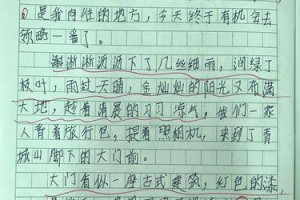 是我自住的地方，今天终于有机会去
领略一番了。
渐渐沥沥地下了几丝细雨，润绿了
枝叶，雨过天晴，金灿灿的阳光又布满
大地，趁着清晨的习习凉气，我们一家
人背着旅行包，提着照相机，来到了青
城山脚下的大门前。
大门有似一座古式建筑，红色的漆，